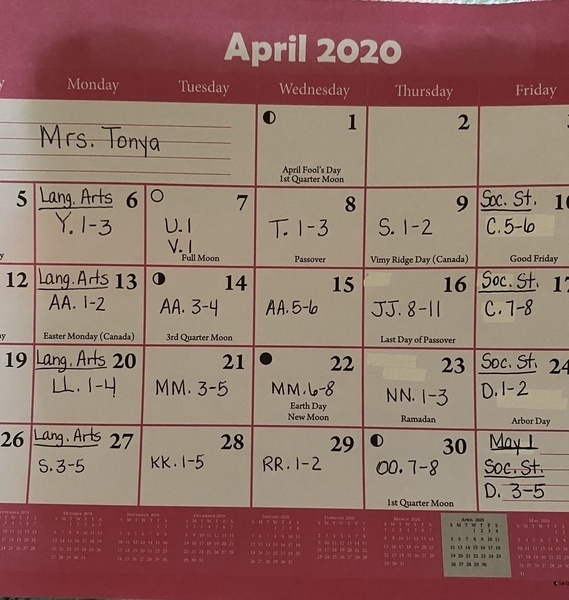 April 2020
Monday Tuesday Wednesday Thursday Friday
Mrs. Tonya
1
April Fool's Day
1st Quarter Moon
2
5
Lang. Arts 6
Y. 1-3
7
U. 1
V. 1
Full Moon
8
T. 1-3
Passover
9
S. 1-2
Vimy Ridge Day (Canada)
Soc. St. 10
C. 5-6
Good Friday
12
Lang. Arts 13
AA. 1-2
Easter Monday (Canada)
14
AA. 3-4
3rd Quarter Moon
15
AA. 5-6
16
JJ. 8-11
Last Day of Passover
Soc. St. 17
C. 7-8
19
Lang. Arts 20
LL. 1-4
21
MM. 3-5
22
MM. 6-8
Earth Day
New Moon
23
NN. 1-3
Ramadan
Soc. St. 24
D. 1-2
Arbor Day
26
Lang. Arts 27
S. 3-5
28
KK. 1-5
29
RR. 1-2
30
OO. 7-8
1st Quarter Moon
May 1
Soc. St.
D. 3-5